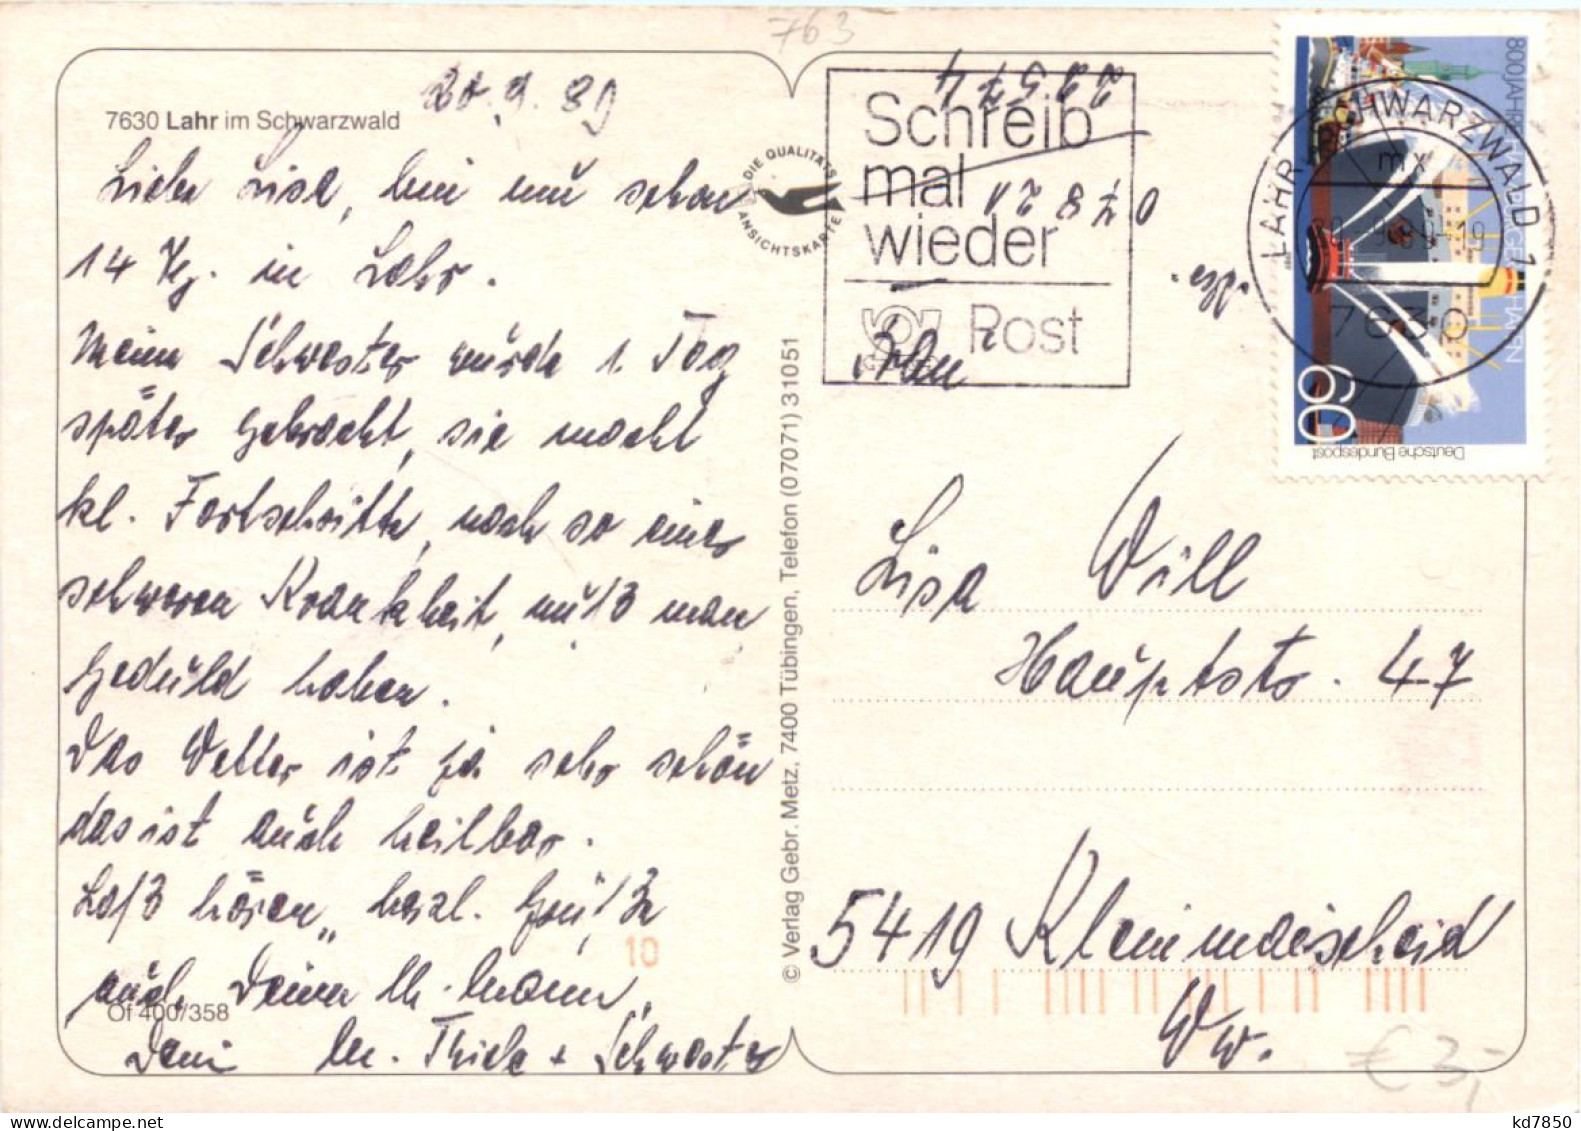 763
7630 Lahr im Schwarzwald
20.9.89
Liebe Lisa, bin nun schon
14 Tg. in Lahr.
Meine Schwester wurde 1. Tag
später gebracht, sie macht
kl. Fortschritte, nach so einer
schweren Krankheit, muß man
Geduld haben.
Das Wetter ist ja sehr schön
das ist auch heilbar.
Laß hören,, herzl. Grüße
auch Deinem Mann,,
Deine M. Thiele + Schwester
10
Of 400/358
DIE QUALITÄTS
ANSICHTSKARTE
© Verlag Gebr. Metz, 7400 Tübingen, Telefon (07071) 31051
22574
Schreib
mal
wieder
Post
07821
LAHR, SCHWARZWALD 1
mx
7630
800 JAHRE HAMBURGER HAFEN
60
Deutsche Bundespost
Lisa Will
Hauptstr. 47
5419 Kleinmaischeid
Ww.
€ 3,-
kd7850